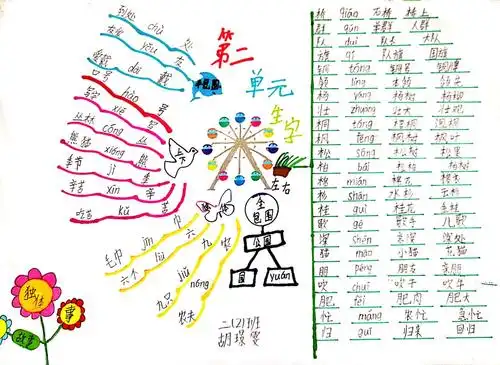 第二
单元
生字
到处 chù 处
友好 yǒu 友
dài 戴
口号 hào 号
xié
丛林 cóng 丛
熊猫 xióng 熊
季节 jì 季
辛苦 xīn 辛
吃苦 kǔ 苦
半包围
毛巾 jīn 巾
六个 liù 六
九只 jiǔ 九
农夫 nóng 农
左右
独体
全包围
公园
园 yuán
二(2)班
独体
故事
桥 qiáo 石桥 桥上
群 qún 羊群 人群
队 duì 队长 大队
旗 qí 队旗 国旗
铜 tóng 铜号
领 lǐng
杨 yáng 杨树 杨柳
壮 zhuàng 壮大 壮观
桐 tóng 梧桐 泡桐
枫 fēng 枫树 枫叶
松 sōng 松树 松果
柏 bǎi 松柏 柏树
棉 mián 棉衣 棉花
杉 shān 水杉
桂 guì 桂花 桂林
歌 gē 歌手 儿歌
深 shēn 深处
猫 māo 小猫 花猫
朋 péng 朋友 亲朋
吹 chuī 吹牛
肥 féi 肥肉 肥大
忙 máng 农忙 急忙
归 guī 归来 回归